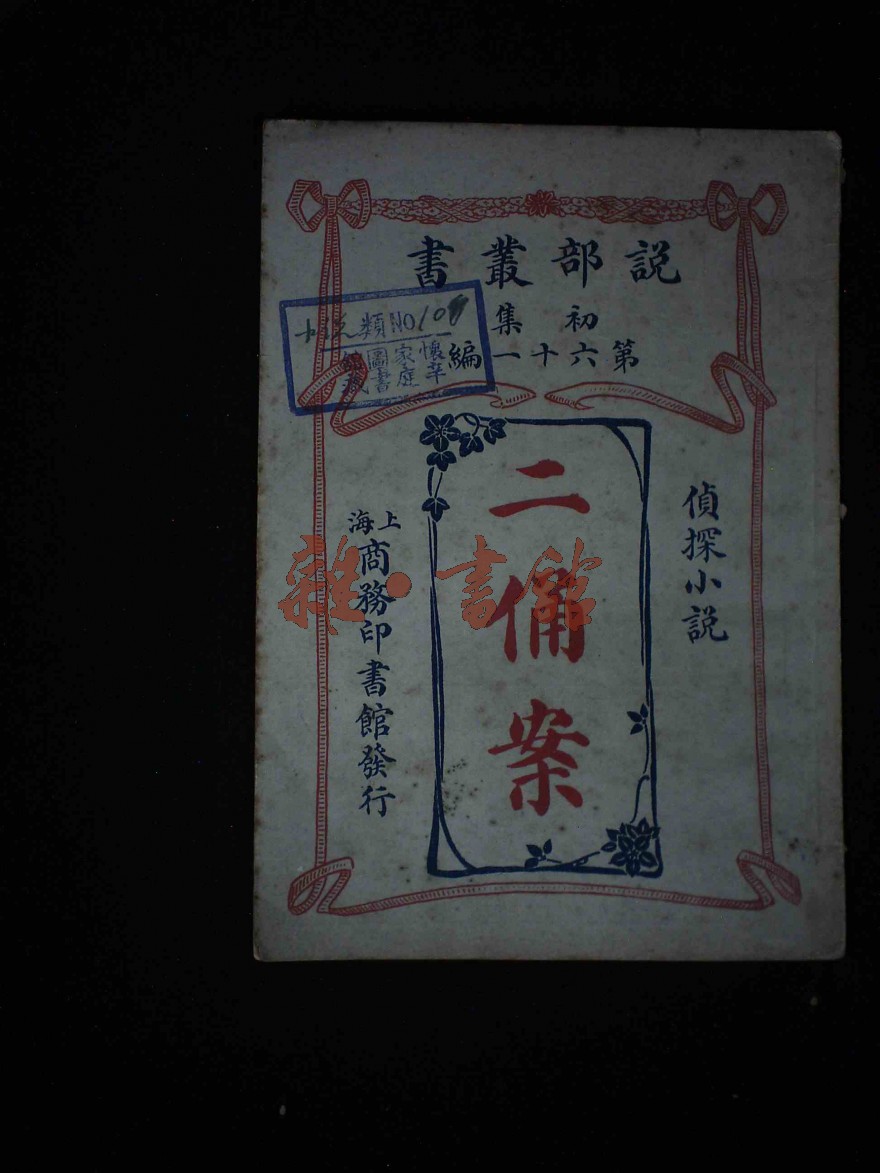 説部叢書
初集
第六十一編
類NO10
懷辛家庭圖書館藏
偵探小説
二俑案
上海
商務印書館發行
雜·書館